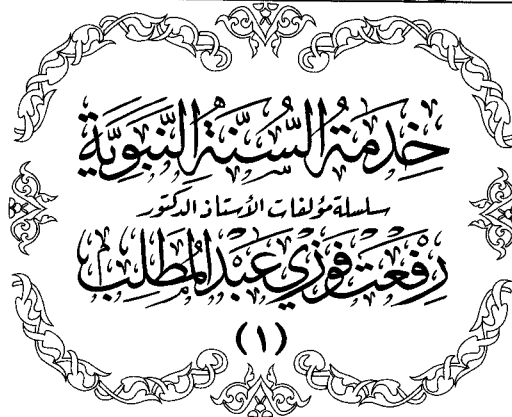 خِدْمَةُ السُّنَّةِ النَّبَوِيَّةِ
سلسلة مؤلفات الأستاذ الدكتور
رِفْعَت فَوْزِي عَبْد المُطَّلِب
(١)